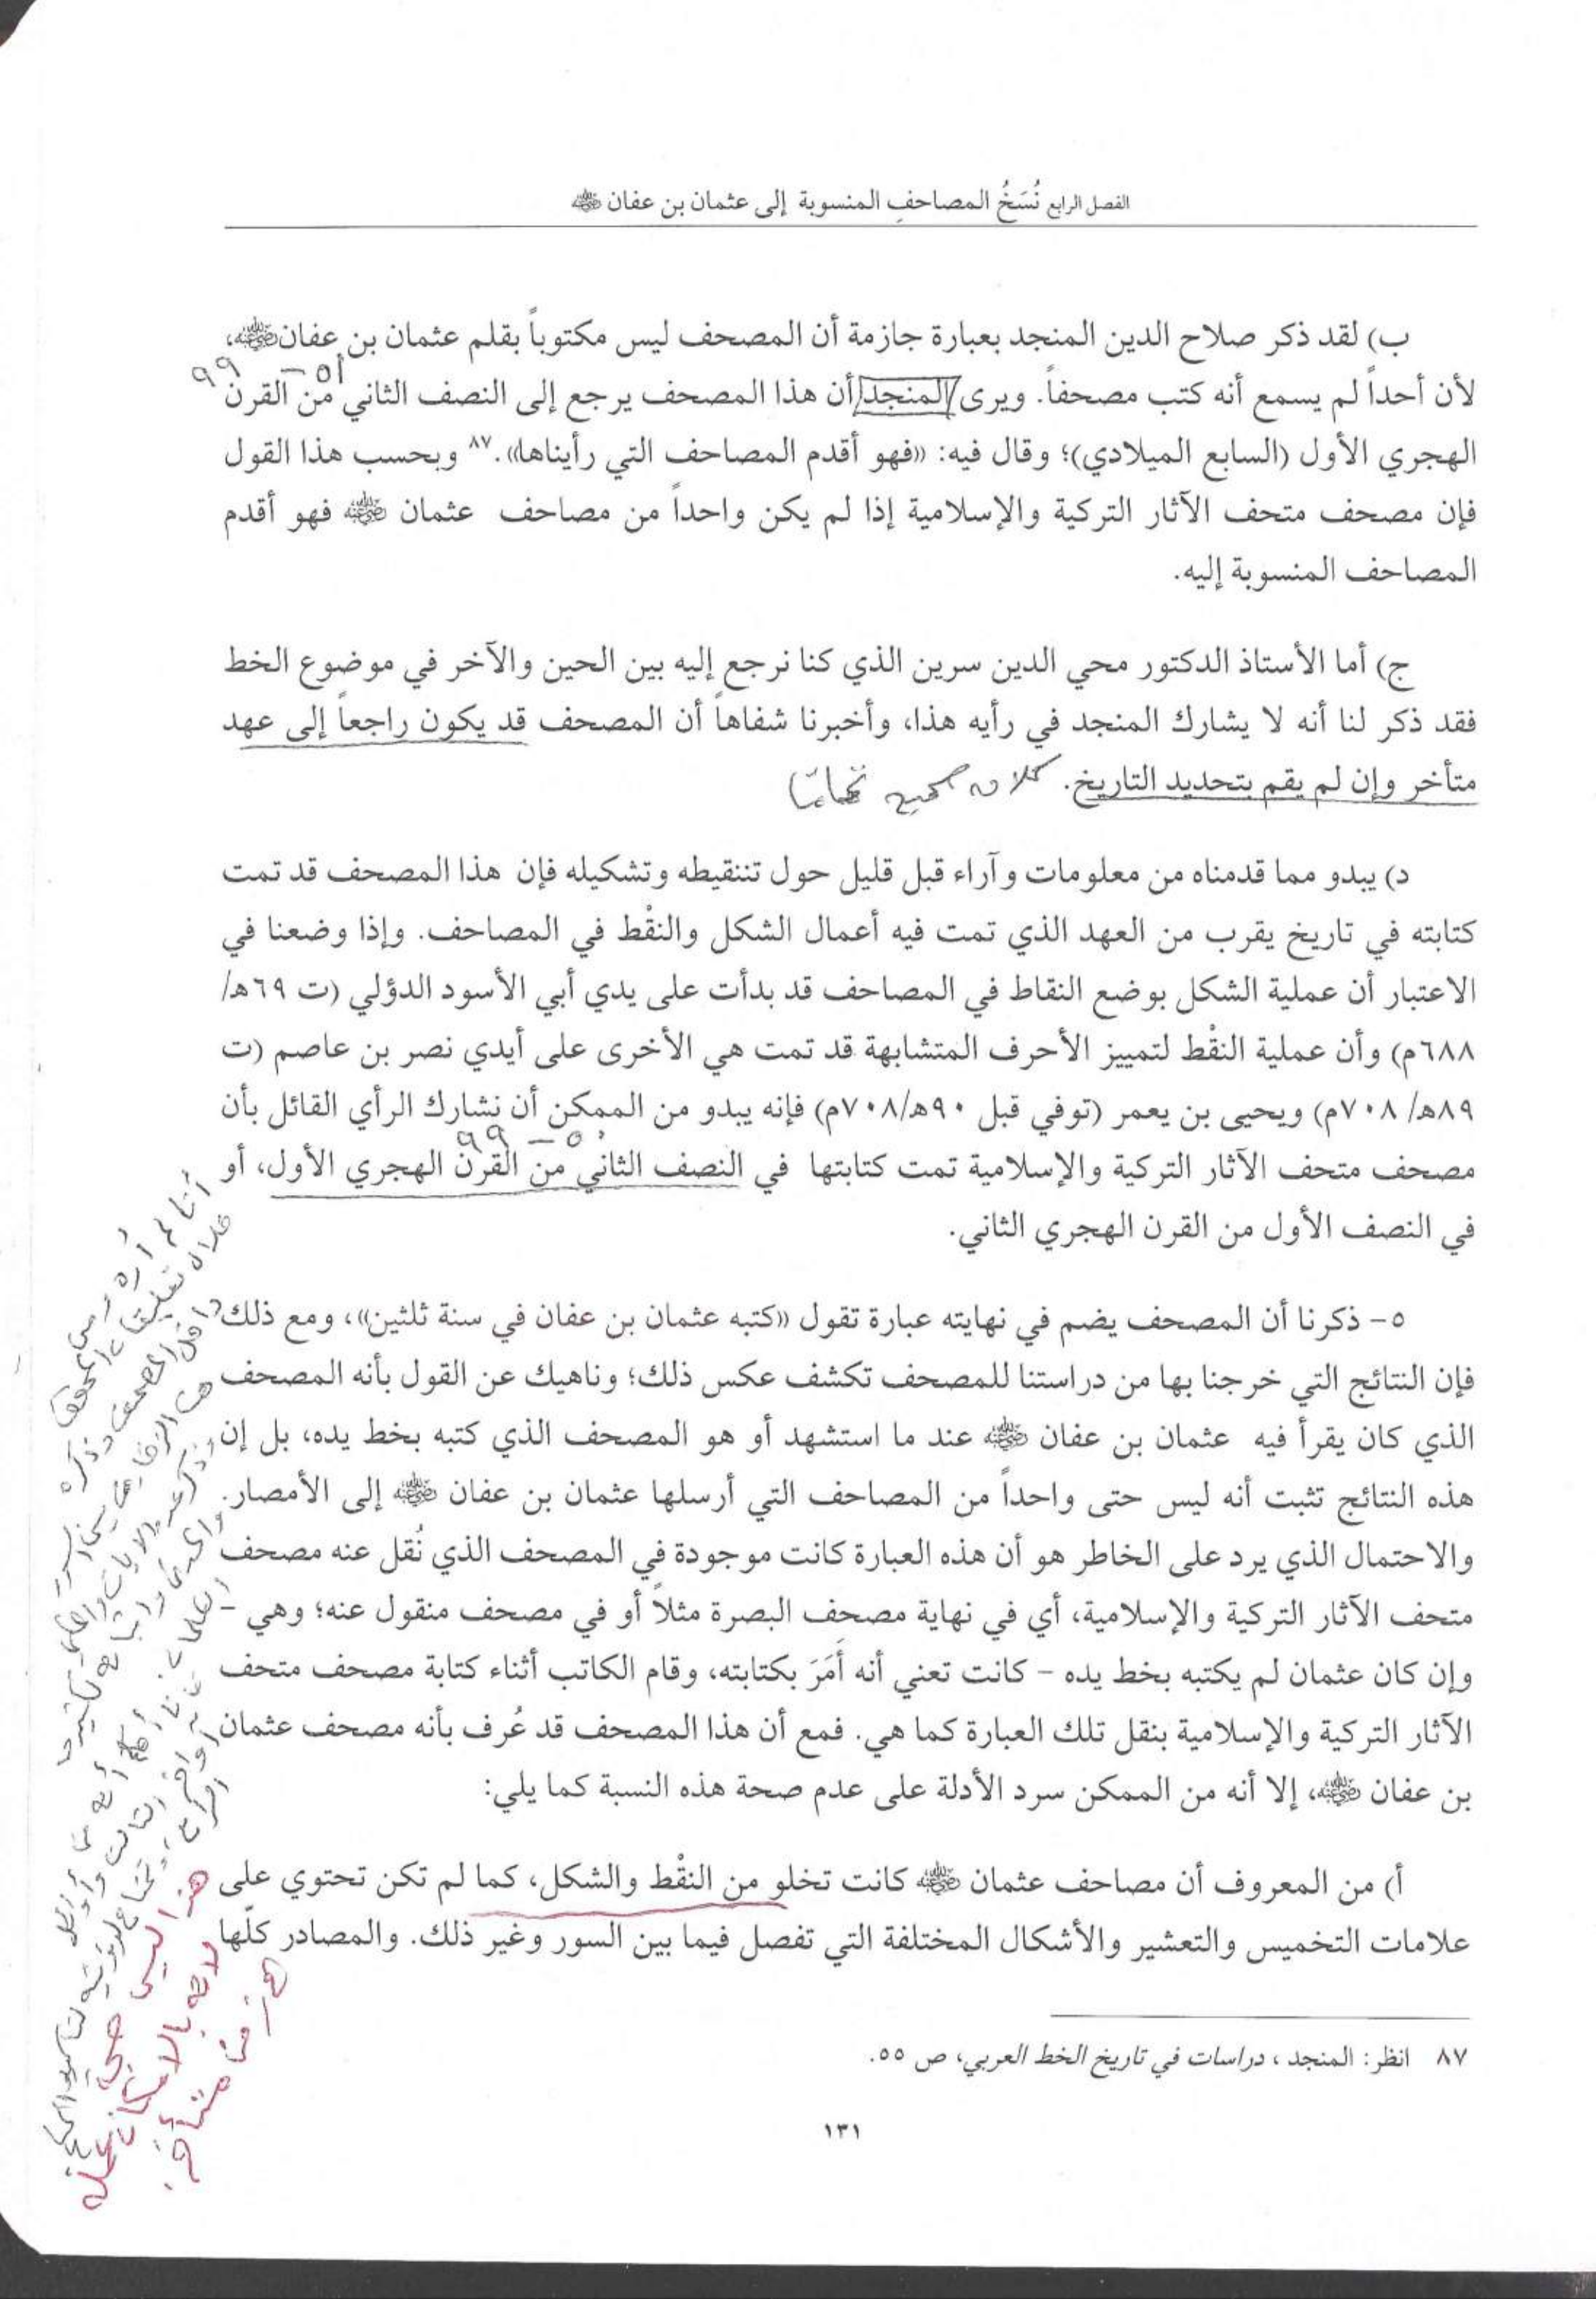 الفصل الرابع نُسَخُ المصاحفِ المنسوبة إلى عثمان بن عفان ﷺ
ب) لقد ذكر صلاح الدين المنجد بعبارة جازمة أن المصحف ليس مكتوباً بقلم عثمان بن عفان رضي الله عنه،
٥١ – ٩٩
لأن أحداً لم يسمع أنه كتب مصحفاً. ويرى المنجد أن هذا المصحف يرجع إلى النصف الثاني من القرن
الهجري الأول (السابع الميلادي)؛ وقال فيه: «فهو أقدم المصاحف التي رأيناها».٨٧ وبحسب هذا القول
فإن مصحف متحف الآثار التركية والإسلامية إذا لم يكن واحداً من مصاحف عثمان رضي الله عنه فهو أقدم
المصاحف المنسوبة إليه.
ج) أما الأستاذ الدكتور محي الدين سرين الذي كنا نرجع إليه بين الحين والآخر في موضوع الخط
فقد ذكر لنا أنه لا يشارك المنجد في رأيه هذا، وأخبرنا شفاهاً أن المصحف قد يكون راجعاً إلى عهد
متأخر وإن لم يقم بتحديد التاريخ. كلامه صحيح تمامًا
د) يبدو مما قدمناه من معلومات وآراء قبل قليل حول تننقيطه وتشكيله فإن هذا المصحف قد تمت
كتابته في تاريخ يقرب من العهد الذي تمت فيه أعمال الشكل والنقْط في المصاحف. وإذا وضعنا في
الاعتبار أن عملية الشكل بوضع النقاط في المصاحف قد بدأت على يدي أبي الأسود الدؤلي (ت ٦٩هـ/
٦٨٨م) وأن عملية النقْط لتمييز الأحرف المتشابهة قد تمت هي الأخرى على أيدي نصر بن عاصم (ت
٨٩هـ/ ٧٠٨م) ويحيى بن يعمر (توفي قبل ٩٠هـ/٧٠٨م) فإنه يبدو من الممكن أن نشارك الرأي القائل بأن
٥٠ – ٩٩
مصحف متحف الآثار التركية والإسلامية تمت كتابتها في النصف الثاني من القرن الهجري الأول، أو
في النصف الأول من القرن الهجري الثاني.
٥- ذكرنا أن المصحف يضم في نهايته عبارة تقول «كتبه عثمان بن عفان في سنة ثلثين»، ومع ذلك
فإن النتائج التي خرجنا بها من دراستنا للمصحف تكشف عكس ذلك؛ وناهيك عن القول بأنه المصحف
الذي كان يقرأ فيه عثمان بن عفان رضي الله عنه عند ما استشهد أو هو المصحف الذي كتبه بخط يده، بل إن
هذه النتائج تثبت أنه ليس حتى واحداً من المصاحف التي أرسلها عثمان بن عفان رضي الله عنه إلى الأمصار.
والاحتمال الذي يرد على الخاطر هو أن هذه العبارة كانت موجودة في المصحف الذي نُقل عنه مصحف
متحف الآثار التركية والإسلامية، أي في نهاية مصحف البصرة مثلاً أو في مصحف منقول عنه؛ وهي -
وإن كان عثمان لم يكتبه بخط يده - كانت تعني أنه أَمَرَ بكتابته، وقام الكاتب أثناء كتابة مصحف متحف
الآثار التركية والإسلامية بنقل تلك العبارة كما هي. فمع أن هذا المصحف قد عُرف بأنه مصحف عثمان
بن عفان رضي الله عنه، إلا أنه من الممكن سرد الأدلة على عدم صحة هذه النسبة كما يلي:
أ) من المعروف أن مصاحف عثمان رضي الله عنه كانت تخلو من النقْط والشكل، كما لم تكن تحتوي على
علامات التخميس والتعشير والأشكال المختلفة التي تفصل فيما بين السور وغير ذلك. والمصادر كلّها
هذا ليس صحيح
لأنه بالإمكان عمله
في زمنا متأخر
٨٧ انظر: المنجد، دراسات في تاريخ الخط العربي، ص ٥٥.
١٣١